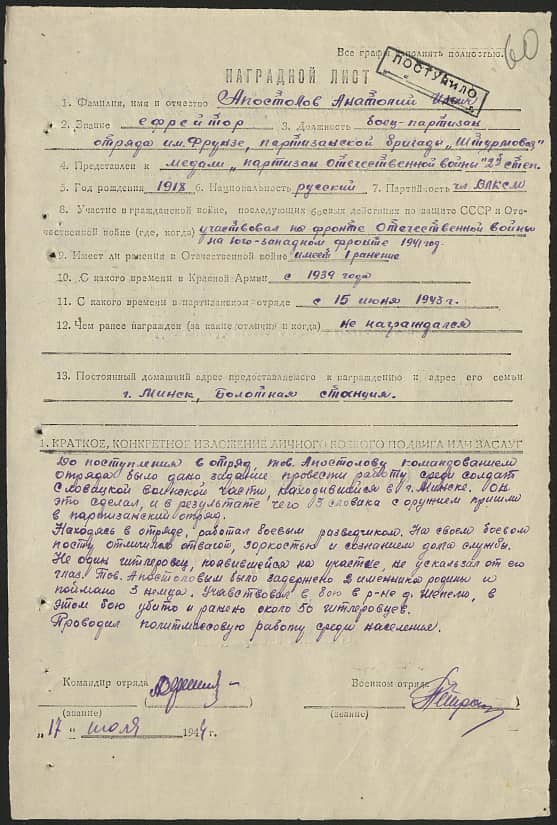 60
Все графы заполнять полностью.
ПОСТУПИЛО
НАГРАДНОЙ ЛИСТ
1. Фамилия, имя и отчество Апостолов Анатолий
2. Звание ефрейтор 3. Должность боец-партизан
отряда им. Фрунзе, партизанской бригады „Штурмовая"
4. Представлен к медали „партизан Отечественной войны" 2й степ.
5. Год рождения 1918 6. Национальность русский 7. Партийность чл. ВЛКСМ
8. Участие в гражданской войне, последующих боевых действиях по защите СССР и Оте-
чественной войне (где, когда) участвовал на фронте Отечественной войны
на юго-западном фронте 1941 год.
9. Имеет ли ранения в Отечественной войне имеет 1 ранение
10. С какого времени в Красной Армии с 1939 года
11. С какого времени в партизанском отряде с 15 июня 1943 г.
12. Чем ранее награжден (за какие отличия и когда) не награждался
13. Постоянный домашний адрес предоставляемого к награждению и адрес его семьи
г. Минск, Болотная станция.
1. КРАТКОЕ, КОНКРЕТНОЕ ИЗЛОЖЕНИЕ ЛИЧНОГО БОЕВОГО ПОДВИГА ИЛИ ЗАСЛУГ
До поступления в отряд, тов. Апостолову командованием
отряда было дано задание провести работу среди солдат
Словацкой воинской части, находившийся в г. Минске. Он
это сделал, и в результате чего 13 словака с оружием пришли
в партизанский отряд.
Находясь в отряде, работал боевым разведчиком. На своем боевом
посту отличился отвагой, зоркостью и сознанием долга службы.
Не один гитлеровец, появившейся на участке, не ускользал от его
глаз. Тов. Апостоловым было задержено 2 изменника родины и
поймано 3 немца. Учавствовал в бою в р-не д. Жепелю, в
этом бою убито и ранено около 50 гитлеровцев.
Проводил политмассовую работу среди населения.
Командир отряда
Военком отряда
(звание)
(звание)
„17" июля 1944 г.